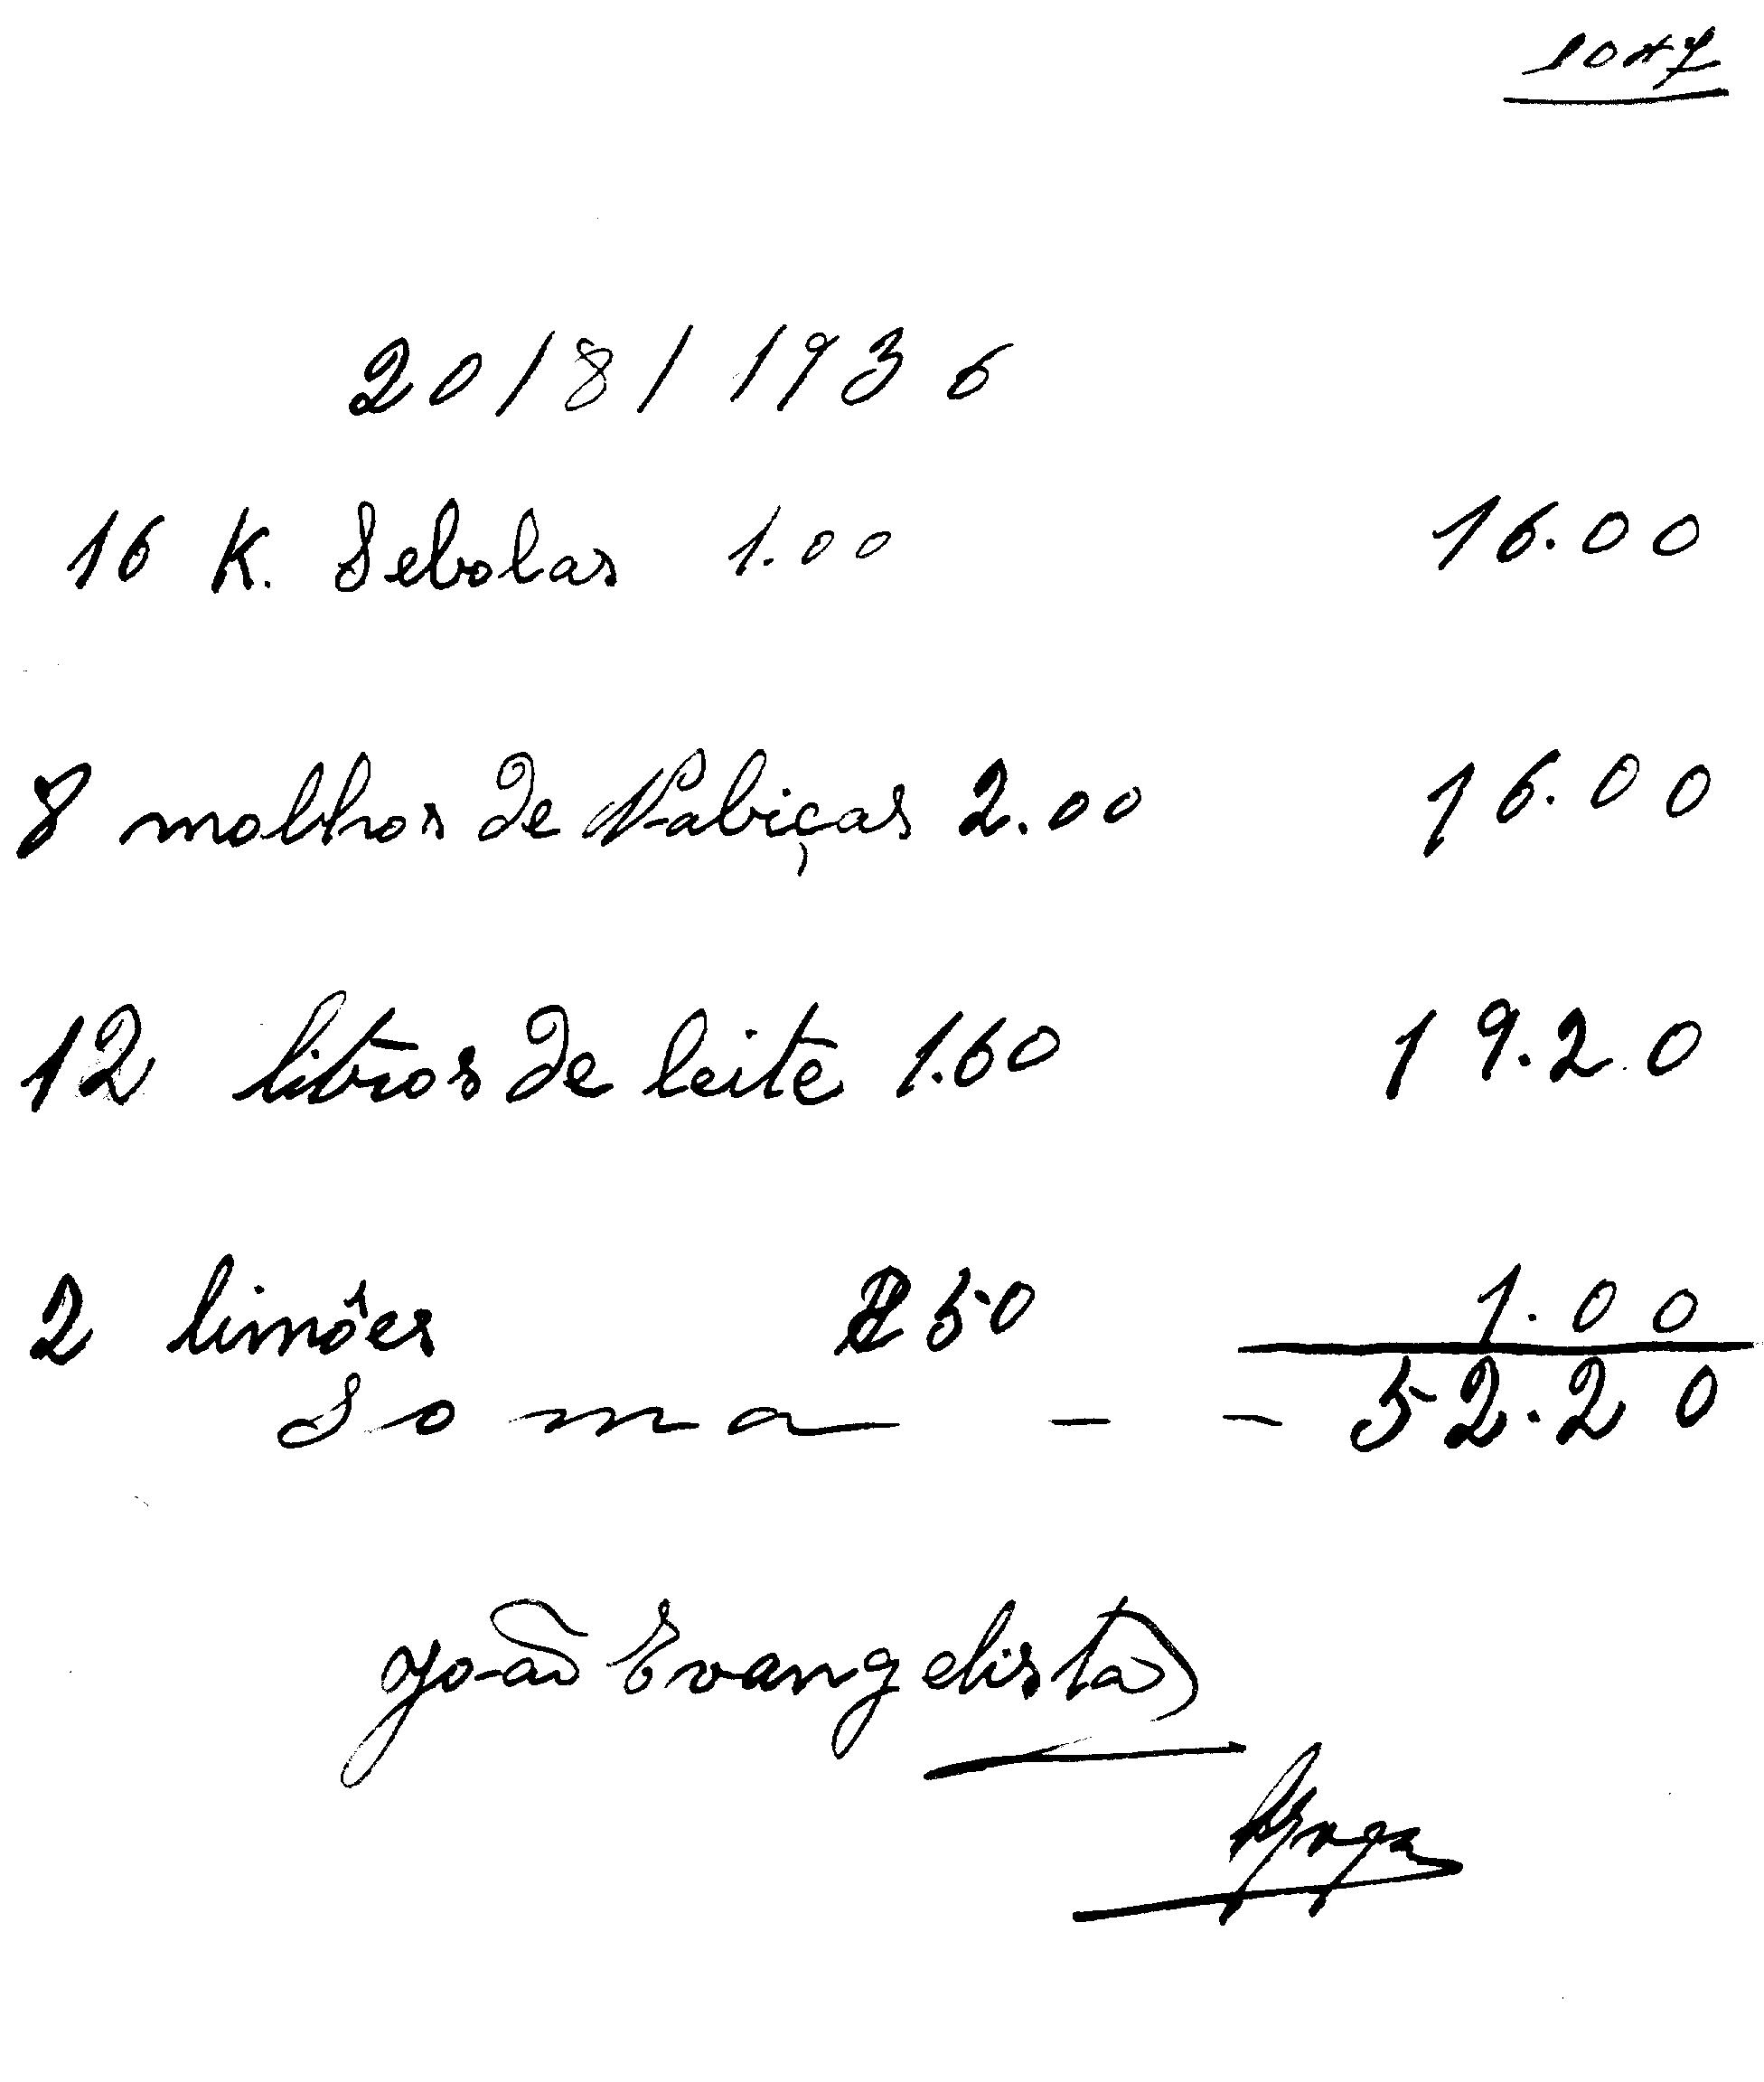 1047
20/8/1936
16 K. Sebolas 1.00 16.00
8 molhos de Nabiças 2.00 16.00
12 litros de leite 1.60 19.20
2 limões 50 1.00
Soma - - 52.20
João Evangelista